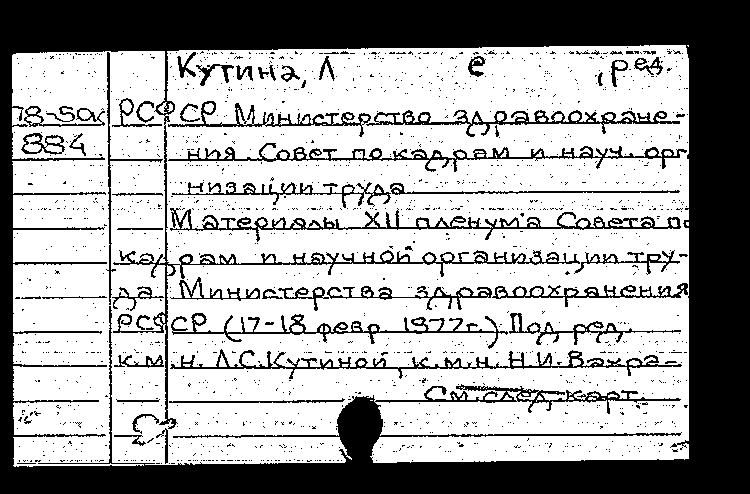 Кутина, Л е , ред.
78-50к РСФСР Министерство здравоохране-
884 ния. Совет по кадрам и науч. орга
низации труда
Материалы XII пленума Совета по
кадрам и научной организации тру-
да Министерства здравоохранения
РСФСР (17-18 февр. 1977г.) Под ред.
к.м.н. Л.С.Кутиной, к.м.н. Н.И.Вахра-
См. след. карт.